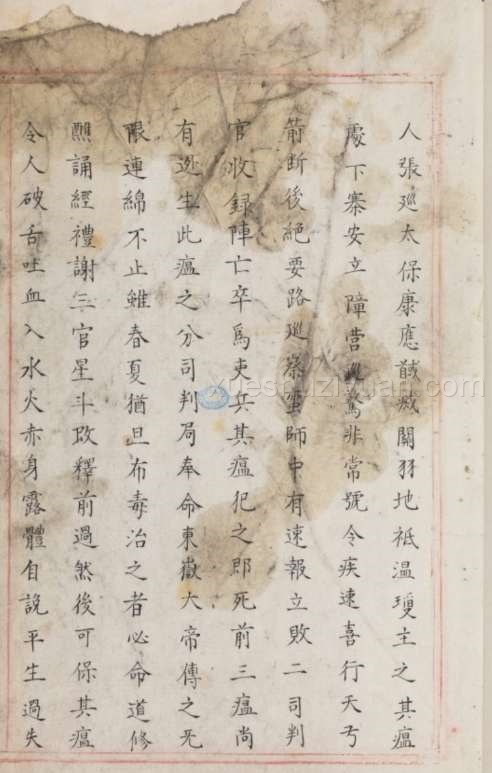 人張廵太保康應戩㓕關羽地祗温瓊主之其瘟
處下寨安立障營廵驚非常號令疾速喜行天弓
箭断後絶要路廵察蛮師中有速報立敗二司判
官收録陣亡卒爲吏兵其瘟犯之即死前三瘟尚
有迯生此瘟之分司判局奉命東嶽大帝傳之无
限連綿不止雖春夏猶且布毒治之者必命道修
醮誦經禮謝三官星斗改釋前過然後可保其瘟
令人破舌吐血入水火赤身露體自説平生過失